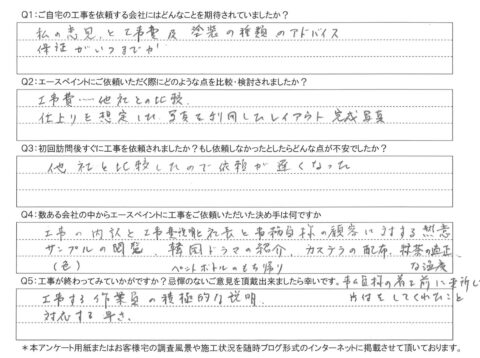 Q1：ご自宅の工事を依頼する会社にはどんなことを期待されていましたか？
私の意見と工事費及 塗装の種類のアドバイス
保証がいつまでか
Q2：エースペイントにご依頼いただく際にどのような点を比較・検討されましたか？
工事費……他社との比較
仕上りを想定した写真を利用したレイアウト 完成写真
Q3：初回訪問後すぐに工事を依頼されましたか？もし依頼しなかったとしたらどんな点が不安でしたか？
他社と比較したので依頼が遅くなった
Q4：数ある会社の中からエースペイントに工事をご依頼いただいた決め手は何ですか
工事の内訳と工事費説明 社長と事務員様の顧客に対する熱意
サンプルの開発、韓国ドラマの紹介、カステラの配布、抹茶の適正
(色) ペットボトルのもち帰り な温度
Q5：工事が終わってみていかがですか？忌憚のないご意見を頂戴出来ましたら幸いです。
工事する作業員の積極的な説明
対応する早さ
をしてくれたこと
＊本アンケート用紙またはお客様宅の調査風景や施工状況を随時ブログ形式のインターネットに掲載させて頂いております。